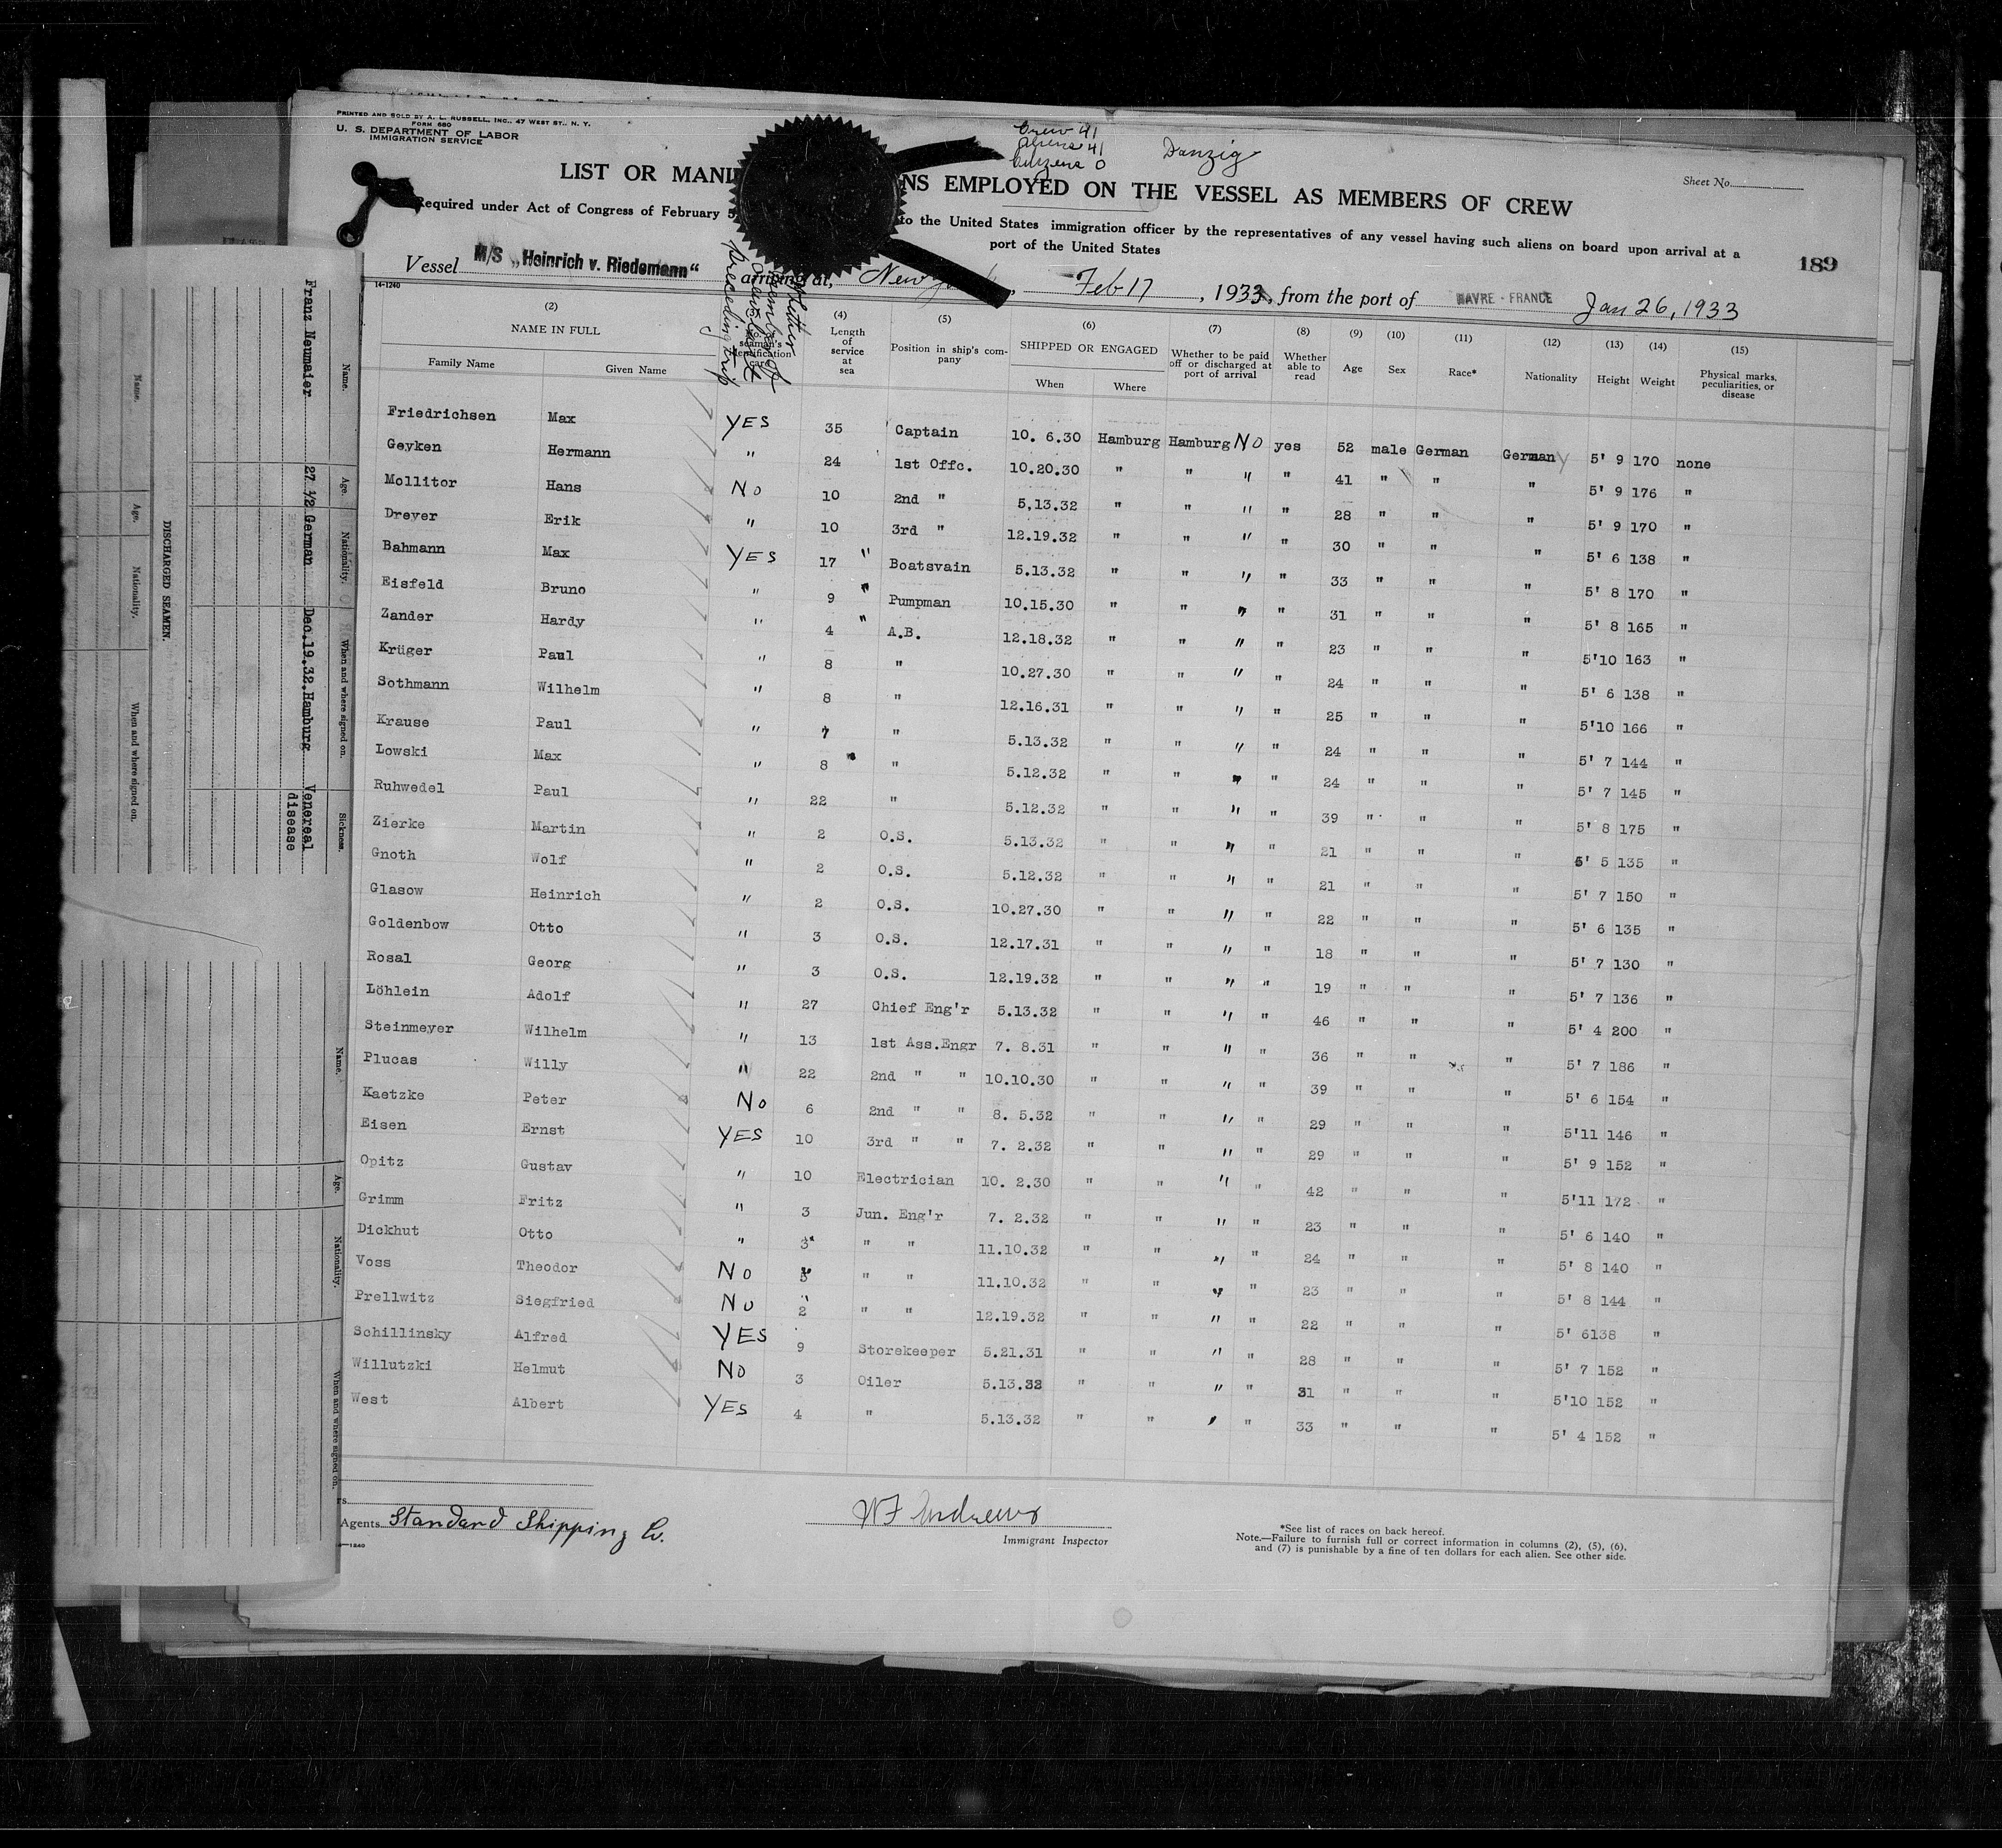 PRINTED AND SOLD BY A. L. RUSSELL, INC., 47 WEST ST., N. Y.
FORM 680
U. S. DEPARTMENT OF LABOR
IMMIGRATION SERVICE
Crew 41
Aliens 41
Citizens 0
Danzig
Sheet No.
LIST OR MANI NS EMPLOYED ON THE VESSEL AS MEMBERS OF CREW
Required under Act of Congress of February 5 to the United States immigration officer by the representatives of any vessel having such aliens on board upon arrival at a
port of the United States
189
Vessel M/S „Heinrich v. Riedemann“ arriving at, New Feb 17, 1933, from the port of HAVRE - FRANCE Jan 26, 1933
14-1240
(2) (4) (5) (6) (7) (8) (9) (10) (11) (12) (13) (14) (15)
NAME IN FULL
Family Name Given Name
seaman's identification card
preceding trip
Length of service at sea
Position in ship's company
SHIPPED OR ENGAGED
When Where
Whether to be paid off or discharged at port of arrival
Whether able to read
Age Sex Race* Nationality Height Weight
Physical marks, peculiarities, or disease
Friedrichsen Max YES 35 Captain 10. 6.30 Hamburg Hamburg NO yes 52 male German Germany 5' 9 170 none
Geyken Hermann " 24 1st Offc. 10.20.30 " " " " 41 " " " 5' 9 176 "
Mollitor Hans No 10 2nd " 5.13.32 " " " " 28 " " " 5' 9 170 "
Dreyer Erik " 10 3rd " 12.19.32 " " " " 30 " " " 5' 6 138 "
Bahmann Max YES 17 " Boatsvain 5.13.32 " " " " 33 " " " 5' 8 170 "
Eisfeld Bruno " 9 " Pumpman 10.15.30 " " " " 31 " " " 5' 8 165 "
Zander Hardy " 4 " A.B. 12.18.32 " " " " 23 " " " 5'10 163 "
Krüger Paul " 8 " 10.27.30 " " " " 24 " " " 5' 6 138 "
Sothmann Wilhelm " 8 " 12.16.31 " " " " 25 " " " 5'10 166 "
Krause Paul " 7 " 5.13.32 " " " " 24 " " " 5' 7 144 "
Lowski Max " 8 " 5.12.32 " " " " 24 " " " 5' 7 145 "
Ruhwedel Paul " 22 " 5.12.32 " " " " 39 " " " 5' 8 175 "
Zierke Martin " 2 O.S. 5.13.32 " " " " 21 " " " 5' 5 135 "
Gnoth Wolf " 2 O.S. 5.12.32 " " " " 21 " " " 5' 7 150 "
Glasow Heinrich " 2 O.S. 10.27.30 " " " " 22 " " " 5' 6 135 "
Goldenbow Otto " 3 O.S. 12.17.31 " " " " 18 " " " 5' 7 130 "
Rosal Georg " 3 O.S. 12.19.32 " " " " 19 " " " 5' 7 136 "
Löhlein Adolf " 27 Chief Eng'r 5.13.32 " " " " 46 " " " 5' 4 200 "
Steinmeyer Wilhelm " 13 1st Ass.Engr 7. 8.31 " " " " 36 " " " 5' 7 186 "
Plucas Willy " 22 2nd " " 10.10.30 " " " " 39 " " " 5' 6 154 "
Kaetzke Peter No 6 2nd " " 8. 5.32 " " " " 29 " " " 5'11 146 "
Eisen Ernst YES 10 3rd " " 7. 2.32 " " " " 29 " " " 5' 9 152 "
Opitz Gustav " 10 Electrician 10. 2.30 " " " " 42 " " " 5'11 172 "
Grimm Fritz " 3 Jun. Eng'r 7. 2.32 " " " " 23 " " " 5' 6 140 "
Dickhut Otto " 3 " " 11.10.32 " " " " 24 " " " 5' 8 140 "
Voss Theodor No 3 " " 11.10.32 " " " " 23 " " " 5' 8 144 "
Prellwitz Siegfried No 2 " " 12.19.32 " " " " 22 " " " 5' 6 138 "
Schillinsky Alfred YES 9 Storekeeper 5.21.31 " " " " 28 " " " 5' 7 152 "
Willutzki Helmut No 3 Oiler 5.13.32 " " " " 31 " " " 5'10 152 "
West Albert YES 4 " 5.13.32 " " " " 33 " " " 5' 4 152 "
rs
Agents Standard Shipping Co.
WF Andrews
Immigrant Inspector
*See list of races on back hereof.
Note.—Failure to furnish full or correct information in columns (2), (5), (6),
and (7) is punishable by a fine of ten dollars for each alien. See other side.
—1240
DISCHARGED SEAMEN.
Name. Age. Nationality. When and where signed on. Sickness.
Franz Neumaier 27 1/2 German Dec.19.32.Hamburg Venereal
disease
Name. Age. Nationality. When and where signed on.
Name. Age. Nationality. When and where signed on.